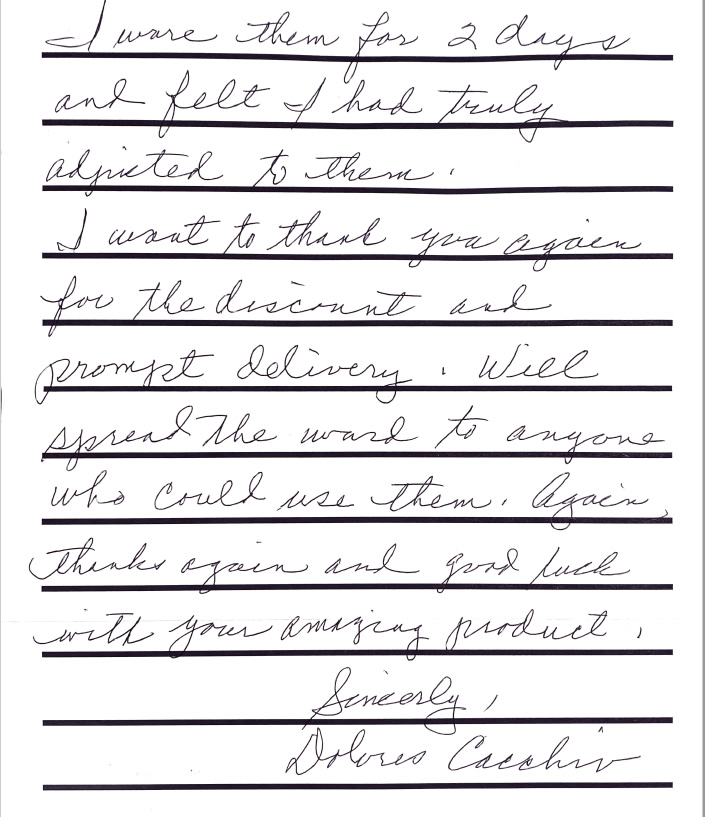 I wore them for 2 days
and felt I had truly
adjusted to them.
I want to thank you again
for the discount and
prompt delivery. Will
spread the word to anyone
who could use them. Again,
thanks again and good luck
with your amazing product.
Sincerly,
Dolores